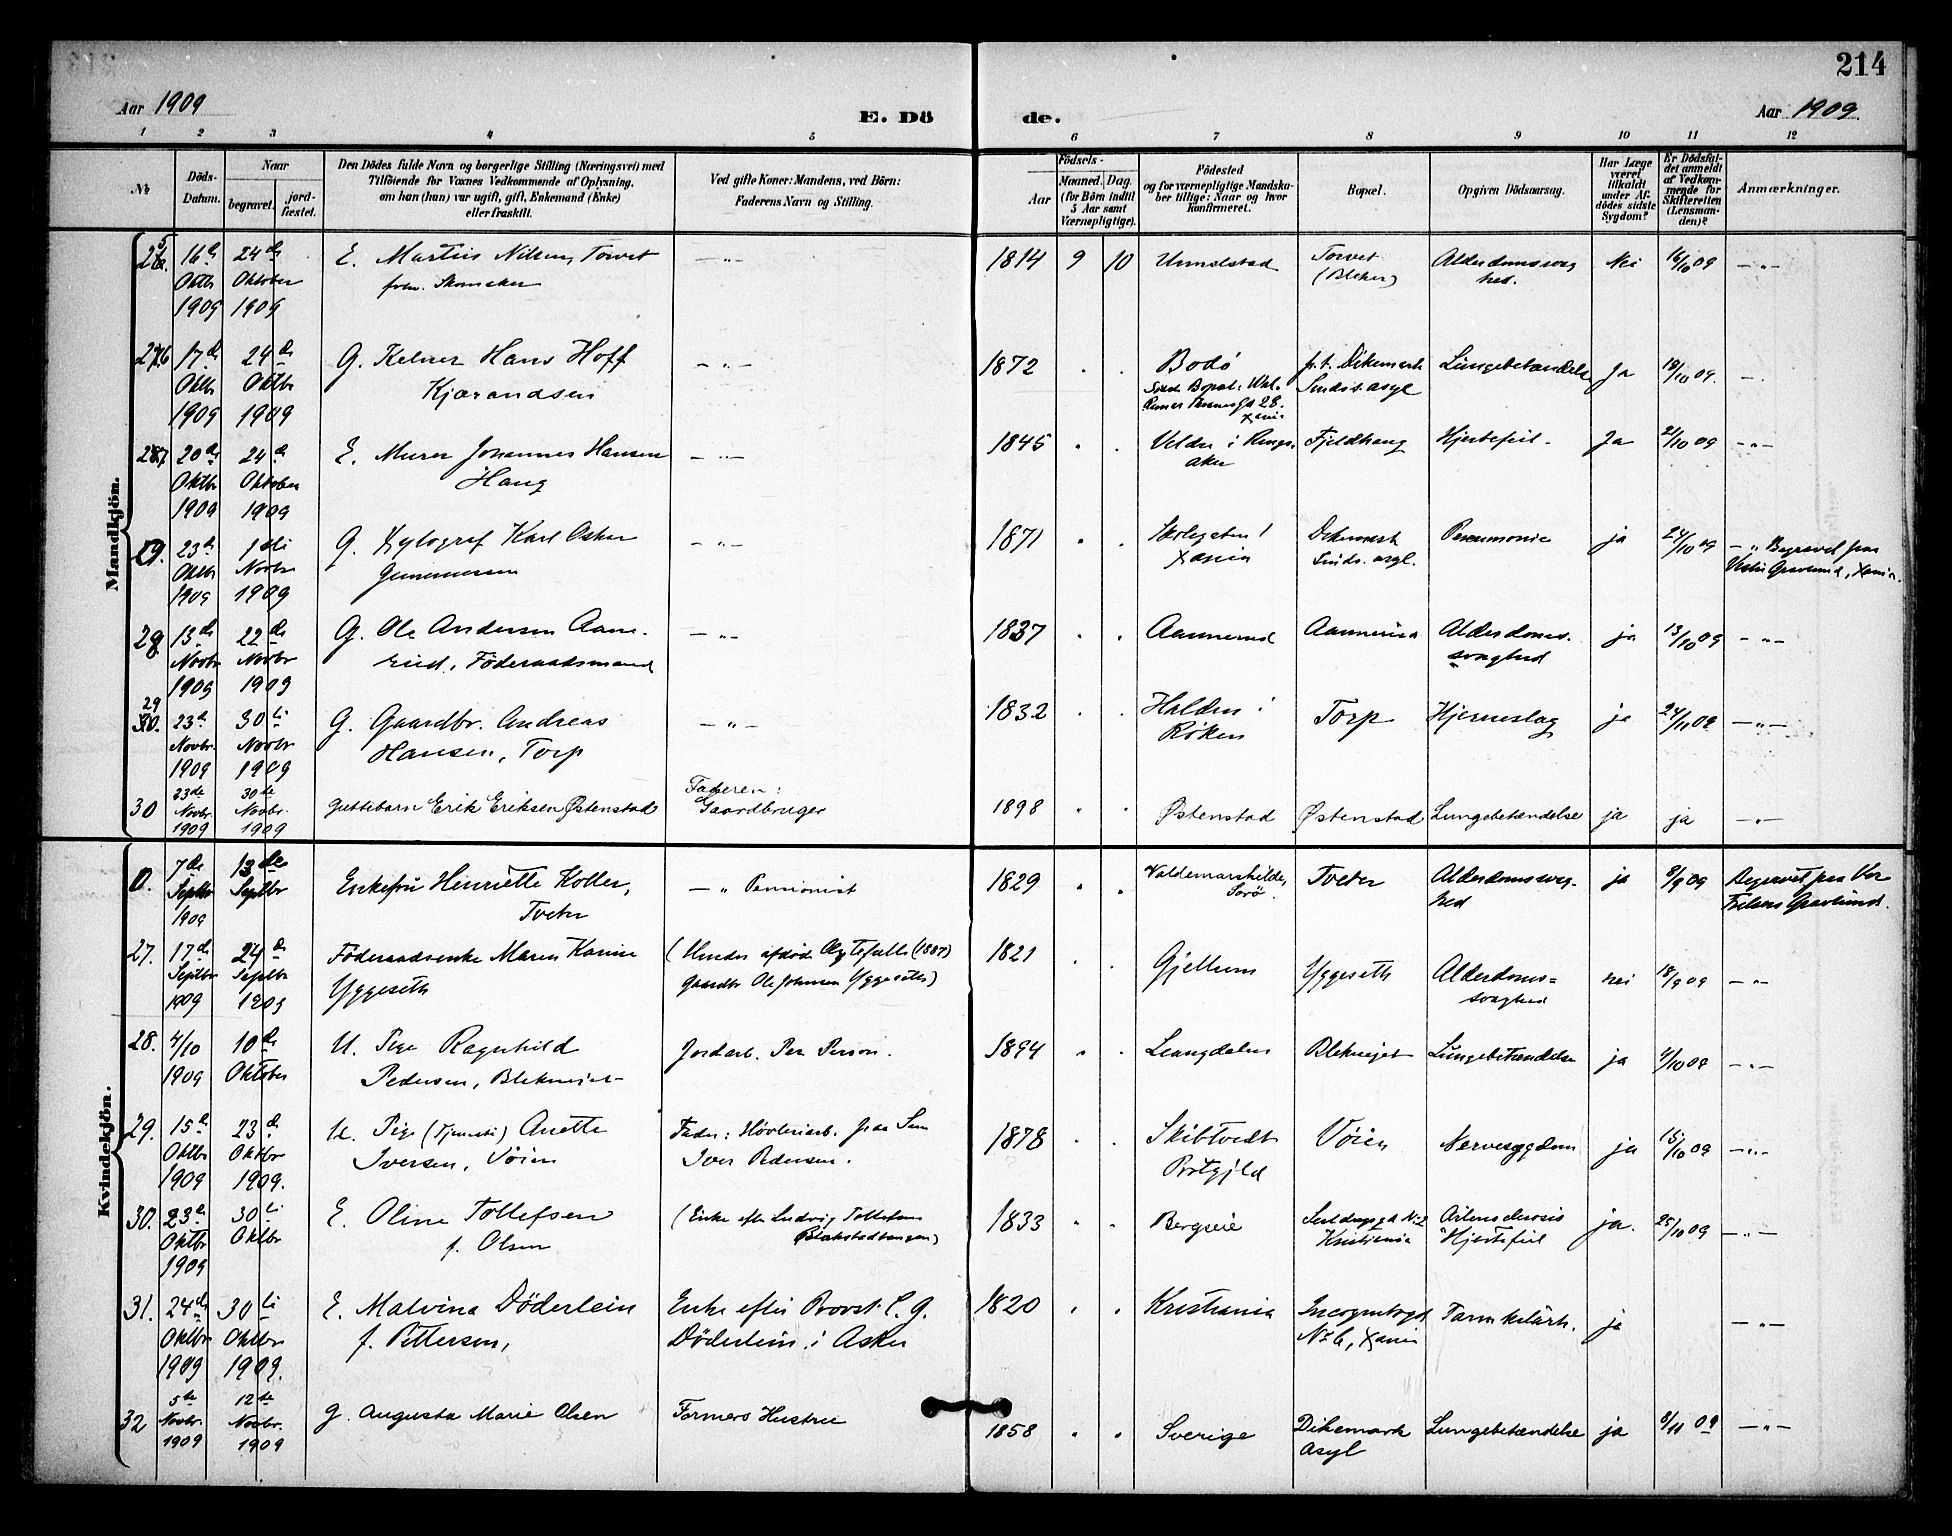 214
Aar 1909
E. Dö
de.
Aar 1909.
1 2 3 4 5 6 7 8 9 10 11 12
№
Döds-
Datum.
Naar
begravet.
jord-
fæstet.
Den Dödes fulde Navn og borgerlige Stilling (Næringsvei) med
Tilföiende for Voxnes Vedkommende af Oplysning,
om han (hun) var ugift, gift, Enkemand (Enke)
eller fraskilt.
Ved gifte Koner: Mandens, ved Börn:
Faderens Navn og Stilling.
Födsels-
Aar
Maaned. Dag.
(for Börn indtil
5 Aar samt
Værnepligtige).
Födested
og for værnepligtige Mandska-
ber tillige: Naar og hvor
konfirmeret.
Bopæl.
Opgiven Dödsaarsag.
Har Læge
været
tilkaldt
under Af-
dödes sidste
Sygdom?
Er Dödsfal-
det anmeldt
af Vedkom-
mende for
Skifteretten
(Lensman-
den)?
Anmærkninger.
Mandkjön.
16de
Oktbr
1909
24de
Oktober
1909
E. Martius Nilsen, Torvet
forv. Skomaker
— „ —
1814 9 10
Torvet
(Bleker)
Alderdomssvag
hed.
Nei
16/10 09
— „ —
17de
Oktbr
1909
24de
Oktbr
1909
G. Kelner Hans Hoff
Kjærandsen
— „ —
1872
Bodö
Xania
p.t. Dikemark
Sinds.asyl
Lungebetændelse
Ja
19/10 09.
20de
Oktbr
1909
24de
Oktober
1909
E. Murer Johannes Hansen
Haug
— „ —
1845
Veldre i Rings-
aker
Fjeldhaug
Hjertefeil
Ja
21/10 09
— „ —
23de
Oktbr
1909
1ste
Novbr
1909
G. Xylograf Karl Oskar
Gunnersen
— „ —
1871
Skolegaten 1
Xania
Dikemark
Sinds. asyl.
Pneumonie
ja
24/10 09
— „ Begravet paa
Vestre Gravlund, Xania.
28.
13de
Novbr
1909
22de
Novbr
1909
G. Ole Andersen Aane-
rud, Föderaadsmand
— „ —
1837
Aannerud
Aannerud
Alderdoms-
svaghed
ja
13/10 09
— „ —
29
30.
23de
Novbr.
1909
30te
Novbr
1909
G. Gaardbr. Andreas
Hansen, Torp
— „ —
1832
Halden i
Röken
Torp
Hjerneslag
ja
24/11 09
— „ —
30
23de
Novbr.
1909
30te
Novbr.
1909
Guttebarn Erik Eriksen Østenstad
Faderen:
Gaardbruger
1898
Østenstad
Østenstad
Lungebetændelse
ja
ja
— „ —
Kvindekjön.
0.
7de
Septbr
1909
13de
Septbr
Enkefru Henriette Koller,
Tveter
— „ Pensionist
1829
Valdemarskilde,
Sorö.
Tveter
Alderdomssvag-
hed
ja
8/9 09
Begravet paa Vor
Frelsers Gravlund.
27.
17de
Septbr
1909
24de
Septbr
1909
Föderaadsenke Maren Karine
Yggeseth
Gaardbr Ole Johnsen Yggeseth)
1821
Gjellum
Yggeseth
Alderdoms-
svaghed
nei
18/9 09
— „ —
28.
4/10
1909
10de
Oktober
U. Pige Ragnhild
Pedersen, Blekneiet
Jordarb. Per Person.
1894
Leangdalen
Blekneiet
Lungebetændelse
ja
— „ —
29.
15de
Oktbr
1909
23de
Oktbr
1909.
U. Pige (Tjeneste) Anette
Iversen, Vöien
Fader: Høvleriarb. paa Sem
Iver Pedersen.
1878
Skibtvedt
Prstgjld
Vöien
Nervesygdom
ja
15/10 09
— „ —
30.
23de
Oktbr
1909
30te
Oktbr
E. Oline Tollefsen
f. Olsen
(Enke efter Ludvig Tollefsen
Blakstadtangen)
1833
Bergseie
Kristiania
Hjertefeil
ja.
25/10 09
— „ —
31.
24de
Oktbr
1909
30te
Oktbr
1909.
E. Malvina Döderlein
f. Pettersen,
Enke efter Provst C. G.
Döderlein i Asker
1820
Kristiania
Incognitogd
No 6, Xania
Tarmkatarh.
ja
— „ —
32
5te
Novbr.
1909
12te
Novbr.
1909
G. Augusta Marie Olsen
Formers Hustru
1858
Sverige
Dikemark
Asyl
Lungebetændelse
ja
8/11 09
— „ —